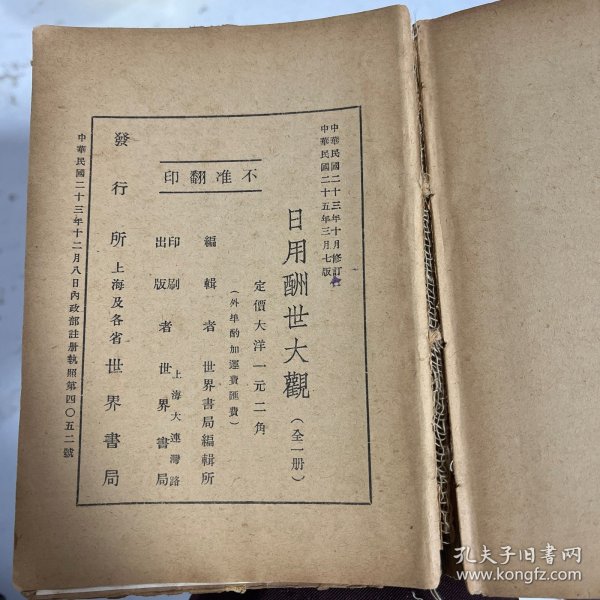 中華民國二十三年十月修訂
中華民國二十五年三月七版
日用酬世大觀
(全一册)
定價大洋一元二角
(外埠酌加運費匯費)
不准翻印
編輯者 世界書局編輯所
印刷者
出版
上海大連灣路
世界書局
發行所 上海及各省 世界書局
中華民國二十三年十二月八日內政部註册執照第四〇五二號
孔夫子旧书网
www.kongfz.com